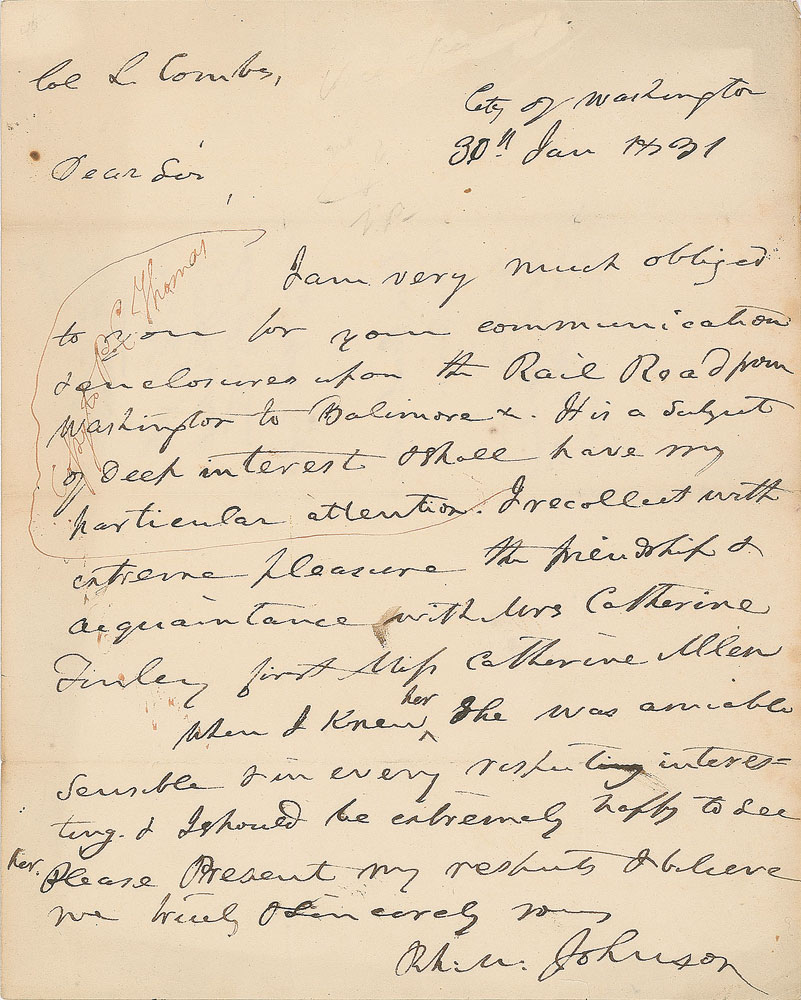 Col L Combs,
City of Washington
30th Jan 1831
Dear Sir,
I am very much obliged
to you for your communication
& enclosures upon the Rail Road from
Washington to Balimore &. It is a Subject
of Deep interest & Shall have my
particular attention. I recollect with
extreme pleasure the friendship &
acquaintance with Mrs Catherine
Finley first Miss Catherine Allen
when I Knew her She was amiable
Sensible & in every respect interes=
ting. & I should be extremely happy to See
her. Please Present my respects & believe
me truly & Sincerely yours
Rh: M: Johnson
Thomas